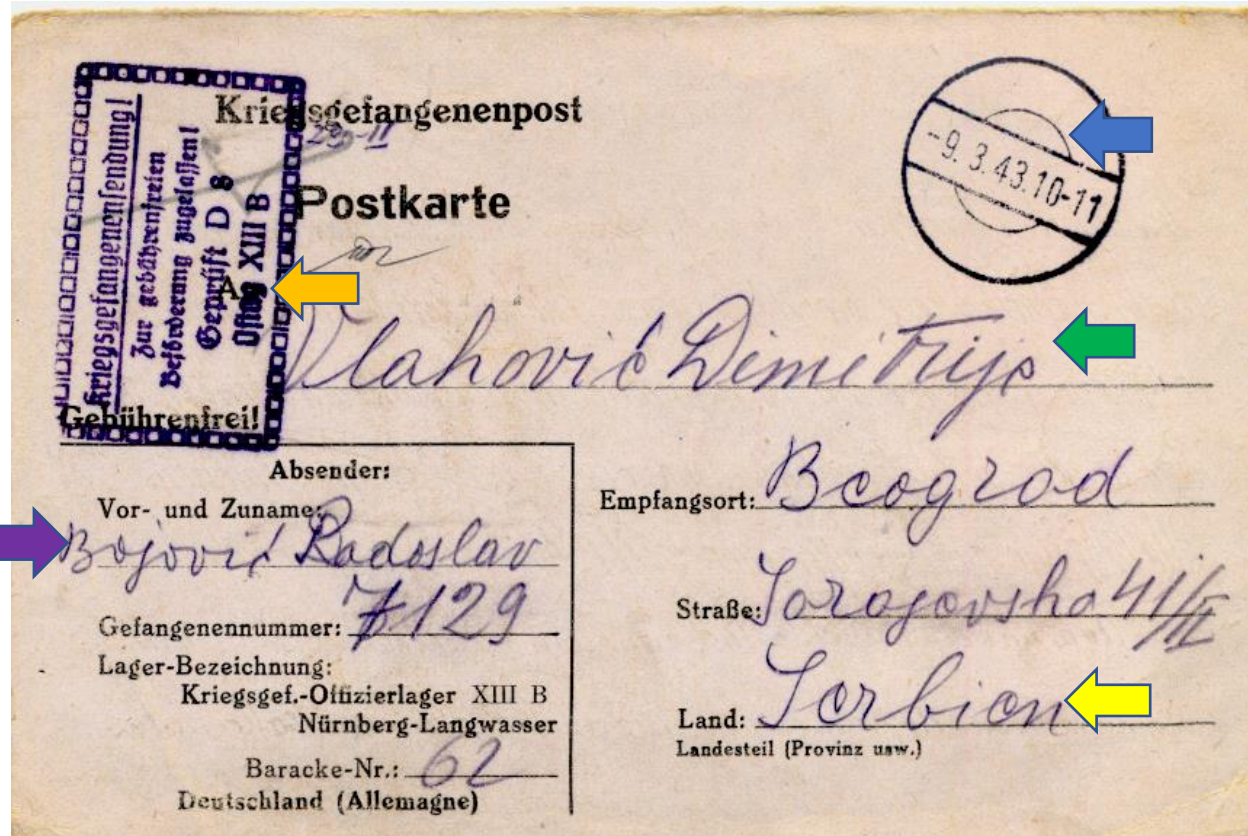 Kriegsgefangenensendung!
Zur gebührenfreien
Beförderung zugelassen!
Geprüft D 8
Oflag XIII B
Kriegsgefangenenpost
Postkarte
-9.3.43.10-11
Vlahović Dimitrije
Gebührenfrei!
Absender:
Vor- und Zuname:
Bojović Radoslav
Gefangenennummer: 7129
Lager-Bezeichnung:
Kriegsgef.-Offizierlager XIII B
Nürnberg-Langwasser
Baracke-Nr.: 62
Deutschland (Allemagne)
Empfangsort: Beograd
Straße: Sarajevska 41/II
Land: Serbien
Landesteil (Provinz usw.)